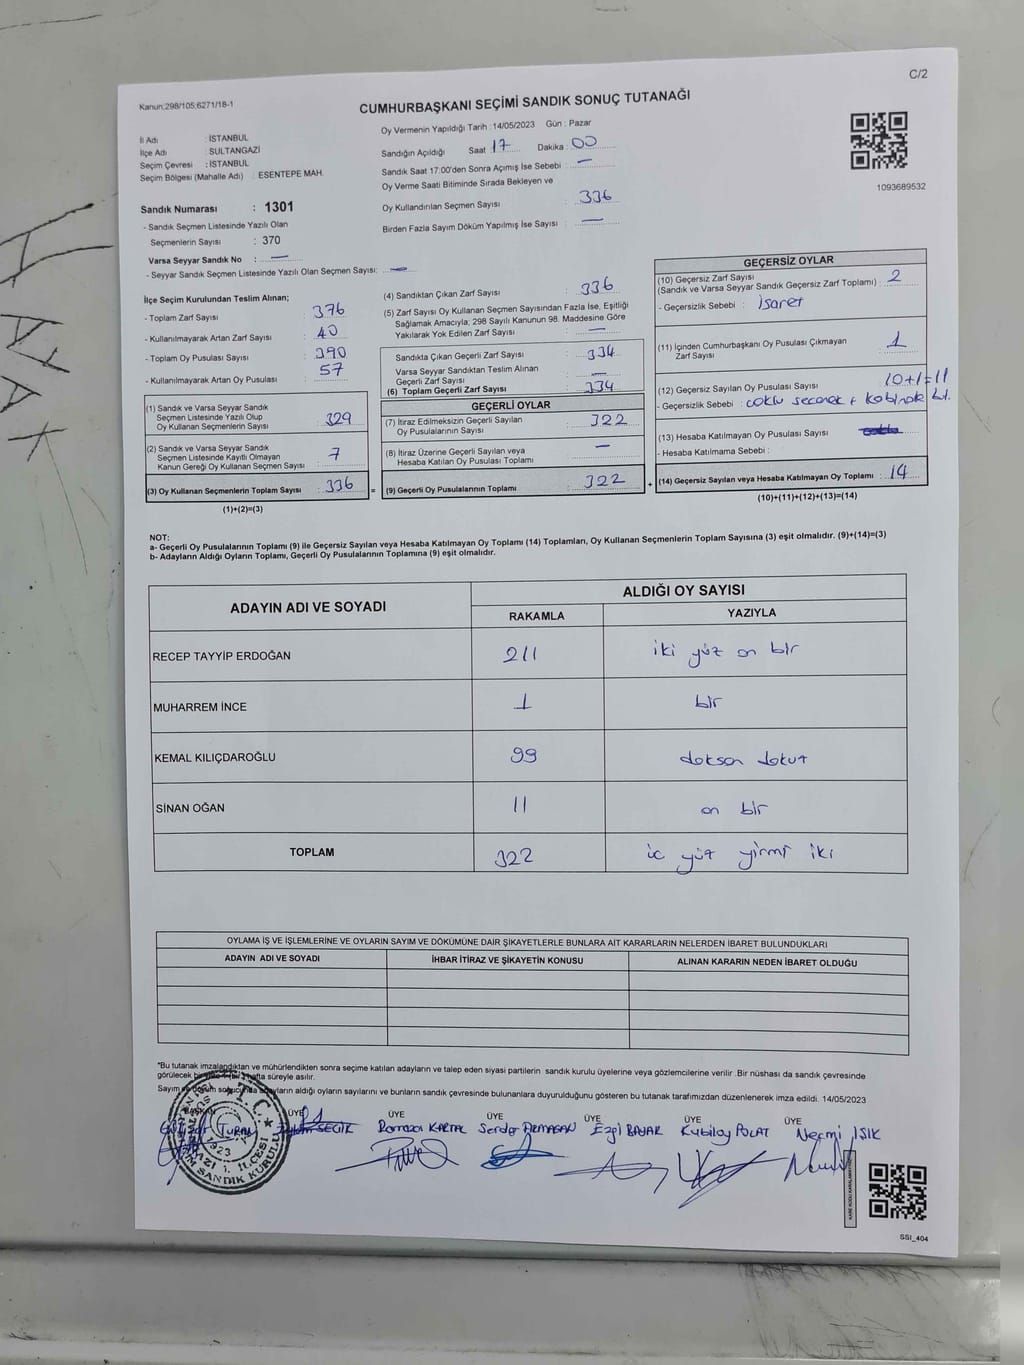 C/2
Kanun:298/105;6271/18-1
CUMHURBAŞKANI SEÇİMİ SANDIK SONUÇ TUTANAĞI
İl Adı : İSTANBUL
İlçe Adı : SULTANGAZİ
Seçim Çevresi : İSTANBUL
Seçim Bölgesi (Mahalle Adı) : ESENTEPE MAH.
Sandık Numarası : 1301
- Sandık Seçmen Listesinde Yazılı Olan
Seçmenlerin Sayısı : 370
Varsa Seyyar Sandık No : —
- Seyyar Sandık Seçmen Listesinde Yazılı Olan Seçmen Sayısı: —
Oy Vermenin Yapıldığı Tarih : 14/05/2023 Gün : Pazar
Sandığın Açıldığı Saat 17 Dakika : 00
Sandık Saat 17:00'den Sonra Açımış İse Sebebi : —
Oy Verme Saati Bitiminde Sırada Bekleyen ve
Oy Kullandırılan Seçmen Sayısı : 336
Birden Fazla Sayım Döküm Yapılmış İse Sayısı : —
1093689532
İlçe Seçim Kurulundan Teslim Alınan;
- Toplam Zarf Sayısı : 376
- Kullanılmayarak Artan Zarf Sayısı : 40
- Toplam Oy Pusulası Sayısı : 390
- Kullanılmayarak Artan Oy Pusulası : 57
(1) Sandık ve Varsa Seyyar Sandık
Seçmen Listesinde Yazılı Olup
Oy Kullanan Seçmenlerin Sayısı : 329
(2) Sandık ve Varsa Seyyar Sandık
Seçmen Listesinde Kayıtlı Olmayan
Kanun Gereği Oy Kullanan Seçmen Sayısı : 7
(3) Oy Kullanan Seçmenlerin Toplam Sayısı : 336 =
(1)+(2)=(3)
(4) Sandıktan Çıkan Zarf Sayısı : 336
(5) Zarf Sayısı Oy Kullanan Seçmen Sayısından Fazla İse, Eşitliği
Sağlamak Amacıyla; 298 Sayılı Kanunun 98. Maddesine Göre
Yakılarak Yok Edilen Zarf Sayısı : —
Sandıkta Çıkan Geçerli Zarf Sayısı : 334
Varsa Seyyar Sandıktan Teslim Alınan
Geçerli Zarf Sayısı :
(6) Toplam Geçerli Zarf Sayısı : 334
GEÇERLİ OYLAR
(7) İtiraz Edilmeksizin Geçerli Sayılan
Oy Pusulalarının Sayısı : 322
(8) İtiraz Üzerine Geçerli Sayılan veya
Hesaba Katılan Oy Pusulası Toplamı : —
(9) Geçerli Oy Pusulalarının Toplamı : 322 +
GEÇERSİZ OYLAR
(10) Geçersiz Zarf Sayısı
(Sandık ve Varsa Seyyar Sandık Geçersiz Zarf Toplamı) : 2
- Geçersizlik Sebebi : İşaret
(11) İçinden Cumhurbaşkanı Oy Pusulası Çıkmayan
Zarf Sayısı : 1
(12) Geçersiz Sayılan Oy Pusulası Sayısı : 10+1=11
- Geçersizlik Sebebi :
(13) Hesaba Katılmayan Oy Pusulası Sayısı :
- Hesaba Katılmama Sebebi :
(14) Geçersiz Sayılan veya Hesaba Katılmayan Oy Toplamı : 14
(10)+(11)+(12)+(13)=(14)
NOT:
a- Geçerli Oy Pusulalarının Toplamı (9) ile Geçersiz Sayılan veya Hesaba Katılmayan Oy Toplamı (14) Toplamları, Oy Kullanan Seçmenlerin Toplam Sayısına (3) eşit olmalıdır. (9)+(14)=(3)
b- Adayların Aldığı Oyların Toplamı, Geçerli Oy Pusulalarının Toplamına (9) eşit olmalıdır.
ADAYIN ADI VE SOYADI ALDIĞI OY SAYISI
RAKAMLA YAZIYLA
RECEP TAYYİP ERDOĞAN 211 iki yüz on bir
MUHARREM İNCE 1 bir
KEMAL KILIÇDAROĞLU 99 doksan dokuz
SİNAN OĞAN 11 on bir
TOPLAM 322 üç yüz yirmi iki
OYLAMA İŞ VE İŞLEMLERİNE VE OYLARIN SAYIM VE DÖKÜMÜNE DAİR ŞİKAYETLERLE BUNLARA AİT KARARLARIN NELERDEN İBARET BULUNDUKLARI
ADAYIN ADI VE SOYADI İHBAR İTİRAZ VE ŞİKAYETİN KONUSU ALINAN KARARIN NEDEN İBARET OLDUĞU
*Bu tutanak imzalandıktan ve mühürlendikten sonra seçime katılan adayların ve talep eden siyasi partilerin sandık kurulu üyelerine veya gözlemcilerine verilir .Bir nüshası da sandık çevresinde
görülecek bir yere bir hafta süreyle asılır.
Sayım ve döküm sonucunda adayların aldığı oyların sayılarını ve bunların sandık çevresinde bulunanlara duyurulduğunu gösteren bu tutanak tarafımızdan düzenlenerek imza edildi. 14/05/2023
BAŞKAN ÜYE ÜYE ÜYE ÜYE ÜYE ÜYE
TURAN Ramazan KARTAL Serdar ARMAĞAN Ezgi BAJAR Kubilay POLAT Necmi IŞIK
T.C.
SANDIK KURULU
SSI_404
HAYAT